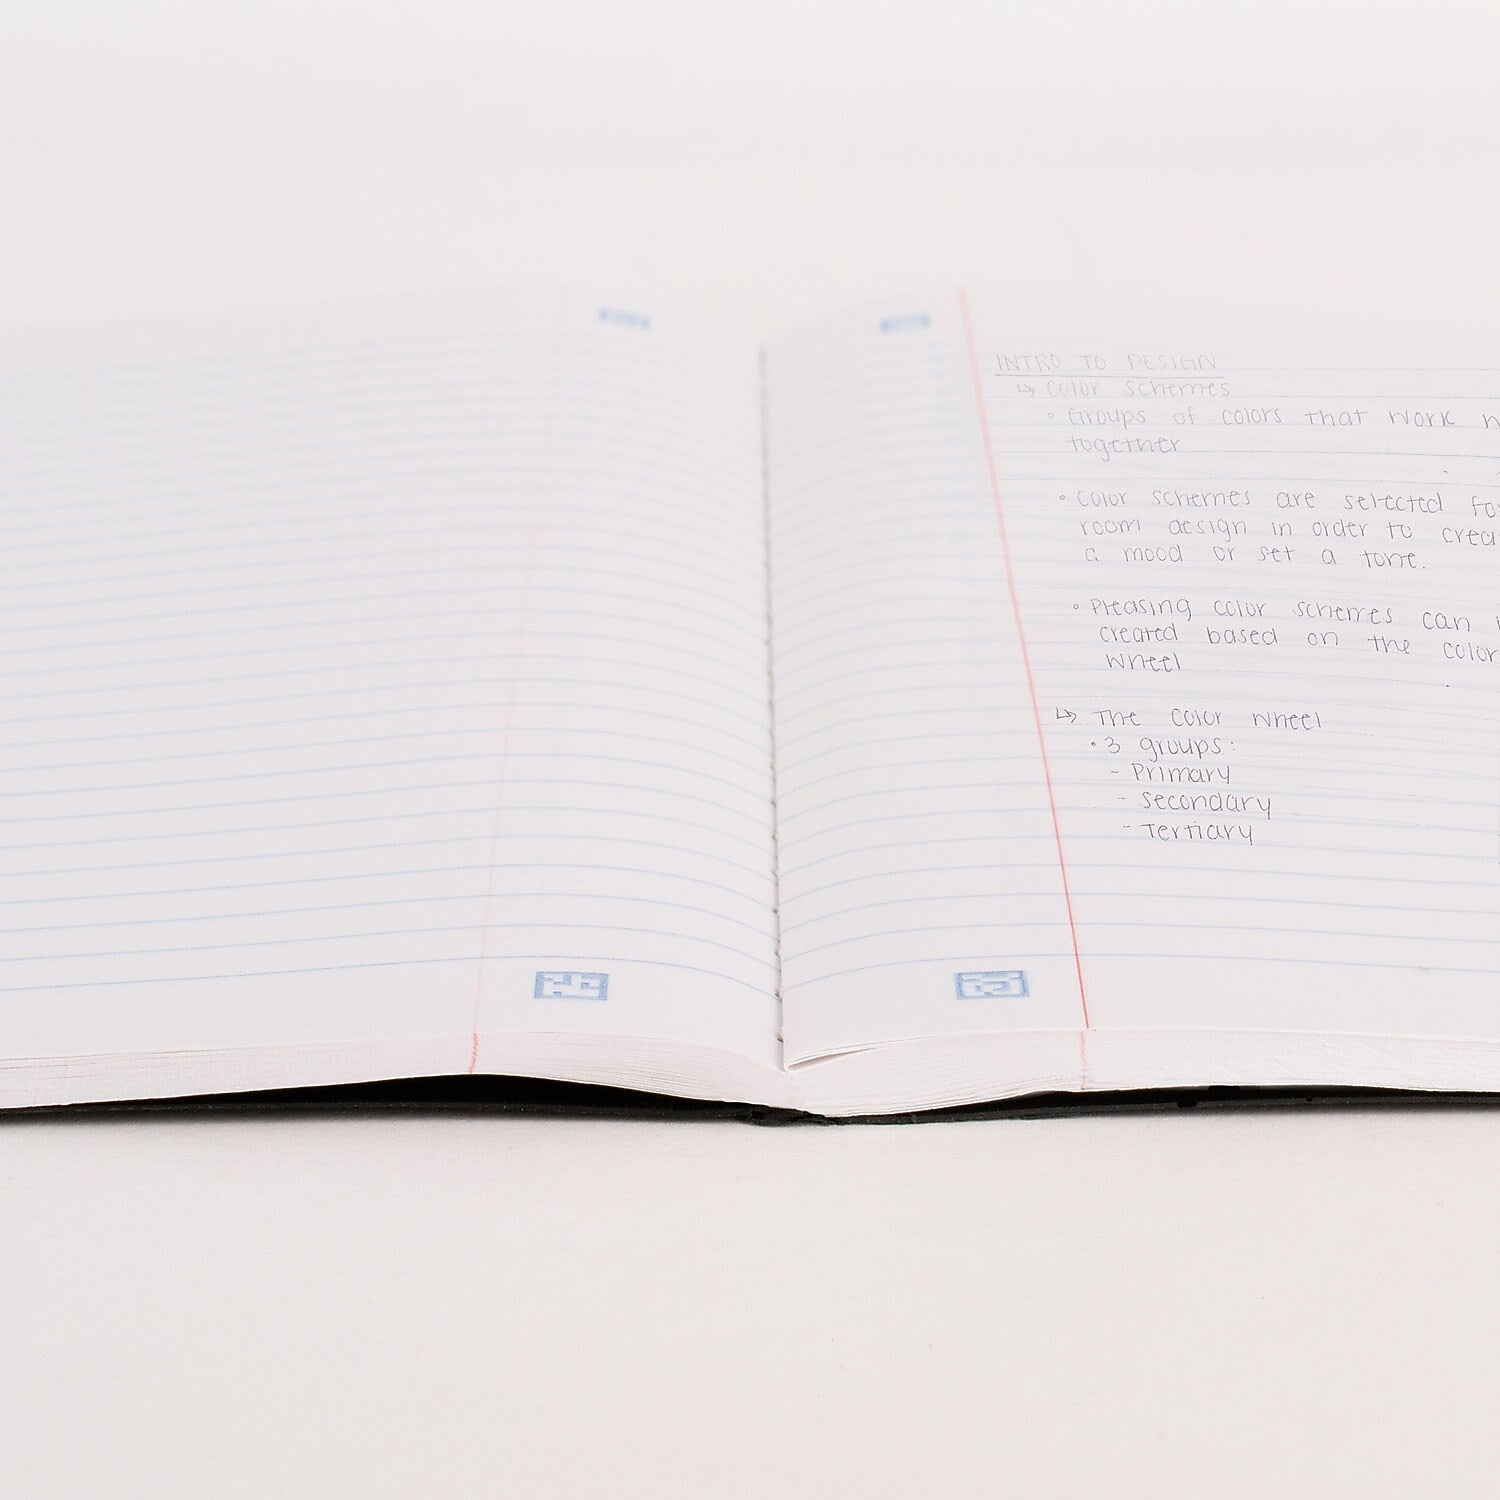 INTRO TO DESIGN
↳ Color schemes
° Groups of colors that work
together
° Color schemes are selected
room design in order to
a mood or set a tone.
° Pleasing color schemes can
created based on the color
wheel
↳ The color wheel
• 3 groups:
- Primary
- Secondary
- Tertiary